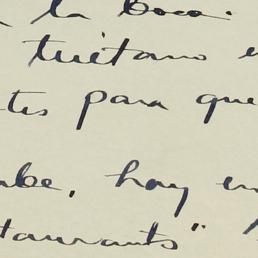 la boca.
tuétano
tes para que
ube, hay en
taurants"